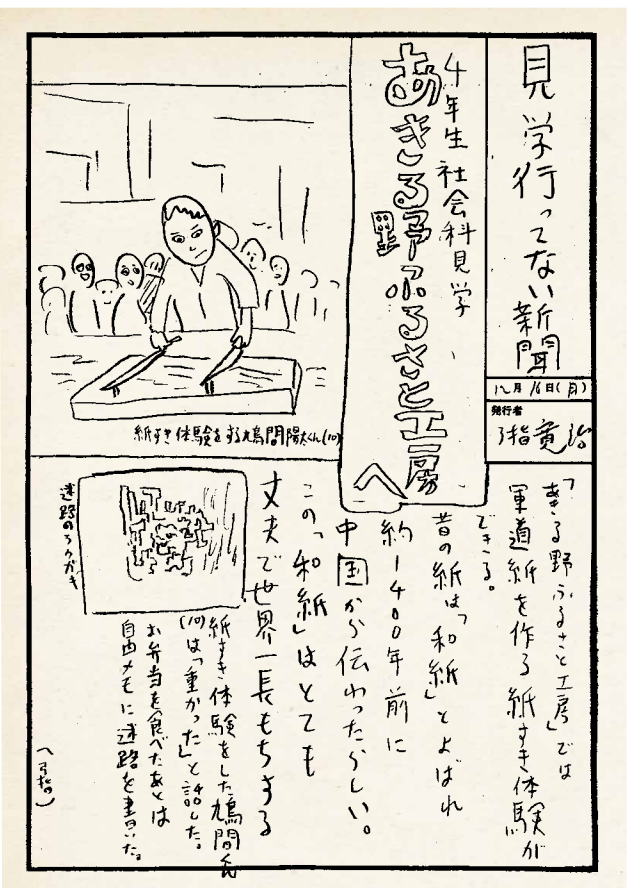 見学行ってない新聞
12月16日(月)
発行者
弓指寛治
4年生 社会科見学
あきる野ふるさと工房へ
紙すき体験をする鳩間陽太くん(10)
「あきる野ふるさと工房」では
軍道紙を作る紙すき体験が
できる。
昔の紙は「和紙」とよばれ
約1400年前に
中国から伝わったらしい。
この「和紙」はとても
丈夫で世界一長もちする
紙すき体験をした鳩間氏
(10)は「重かった」と話した。
お弁当を食べたあとは
自由メモに迷路を書いた。
(弓指)
迷路のラクガキ